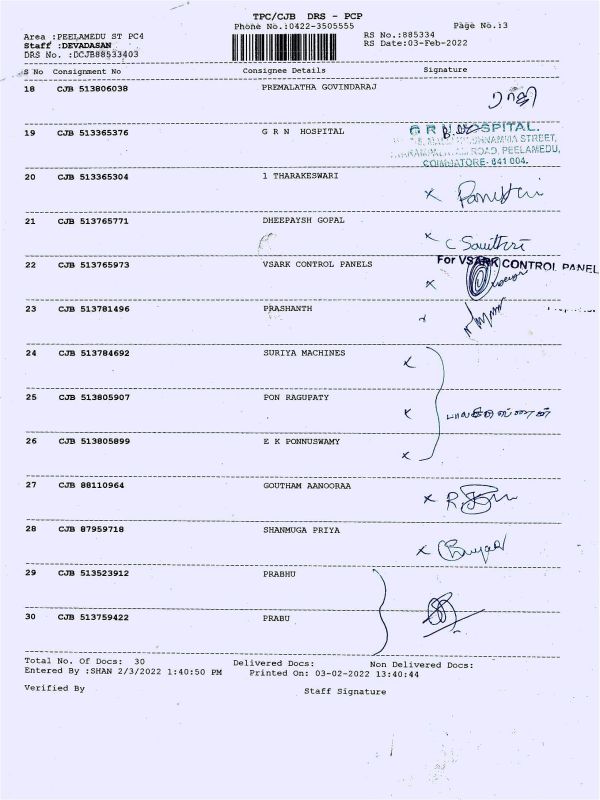 TPC/CJB DRS - PCP
Phone No.:0422-3505555 Page No.:3
Area :PEELAMEDU ST PC4 RS No.:885334
Staff :DEVADASAN RS Date:03-Feb-2022
DRS No. :DCJB88533403
S No Consignment No Consignee Details Signature
18 CJB 513806038 PREMALATHA GOVINDARAJ
19 CJB 513365376 G R N HOSPITAL
G R N HOSPITAL.
STREET,
ROAD, PEELAMEDU,
COIMBATORE- 641 004.
20 CJB 513365304 1 THARAKESWARI x
21 CJB 513765771 DHEEPAYSH GOPAL x C Savithri
For VSARK CONTROL PANEL
22 CJB 513765973 VSARK CONTROL PANELS x
23 CJB 513781496 PRASHANTH
24 CJB 513784692 SURIYA MACHINES x
25 CJB 513805907 PON RAGUPATY x
26 CJB 513805899 E K PONNUSWAMY x
27 CJB 88110964 GOUTHAM AANOORAA x
28 CJB 87959718 SHANMUGA PRIYA x
29 CJB 513523912 PRABHU
30 CJB 513759422 PRABU
Total No. Of Docs: 30 Delivered Docs: Non Delivered Docs:
Entered By :SHAN 2/3/2022 1:40:50 PM Printed On: 03-02-2022 13:40:44
Verified By Staff Signature